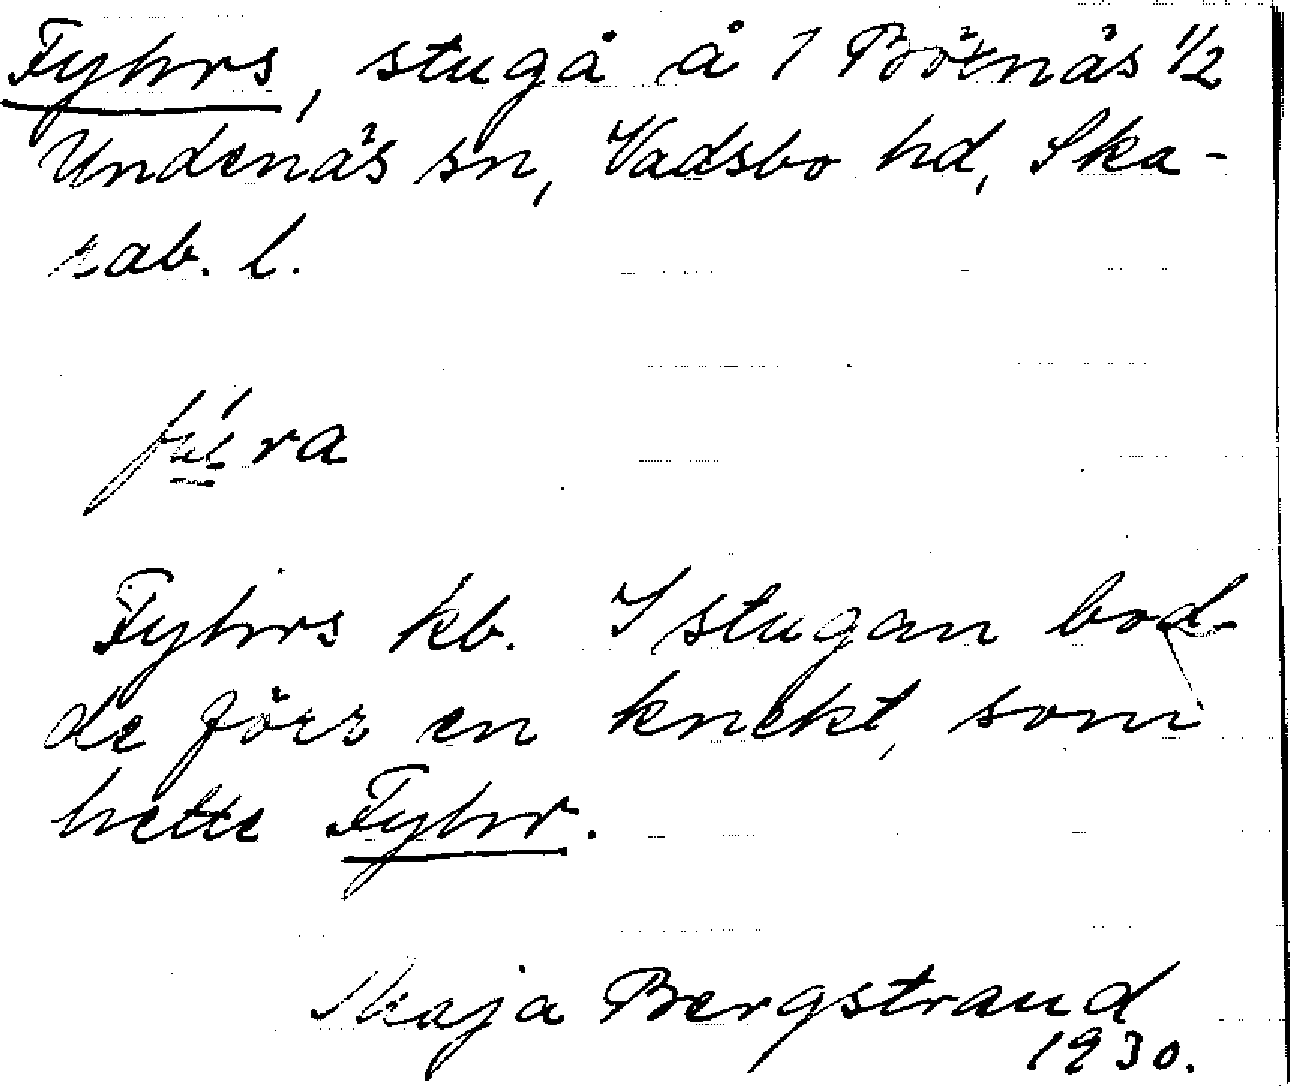 Fyhrs, stuga å 1 Bötnäs 1/2
Undenäs sn, Vadsbo hd, Ska-
rab. l.
Fyhrs kb. I stugan bod-
de förr en knekt, som
hette Fyhr.
Maja Bergstrand
1930.